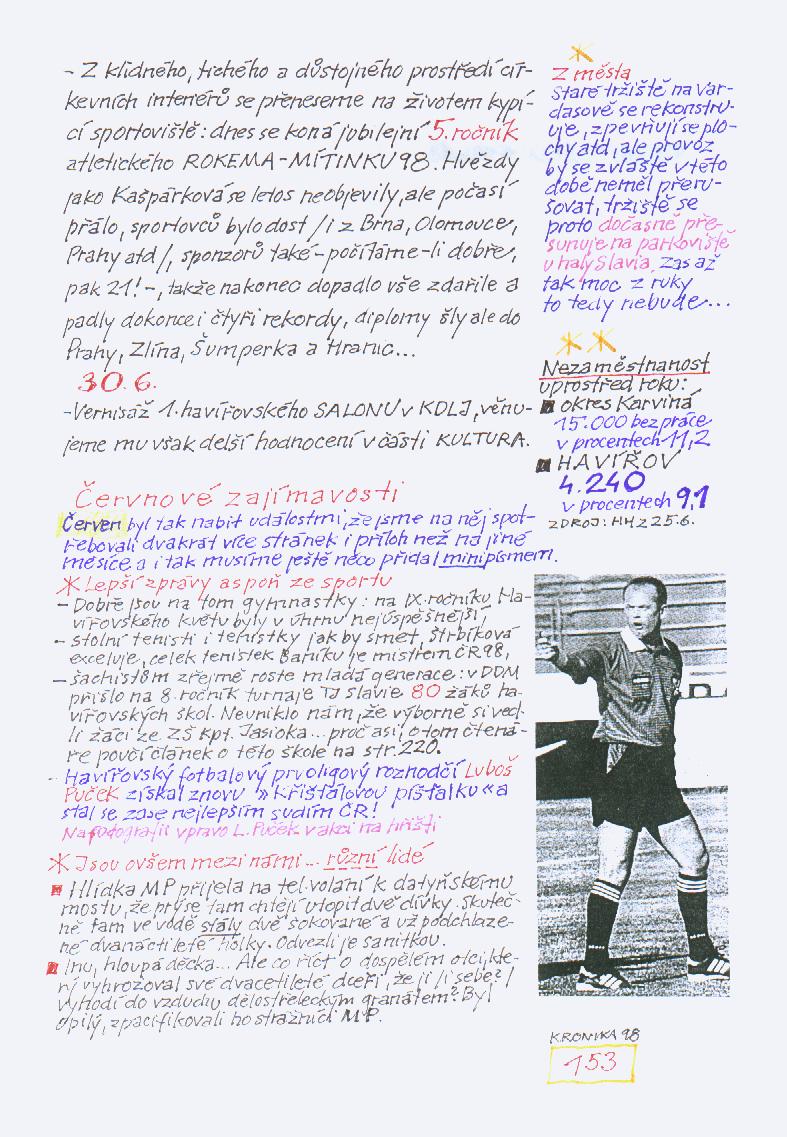 - Z klidného, tichého a důstojného prostředí cír-
kevních interiérů se přeneseme na životem kypí-
cí sportoviště: dnes se koná jubilejní 5. ročník
atletického ROKEMA-MÍTINKU 98. Hvězdy
jako Kašpárková se letos neobjevily, ale počasí
přálo, sportovců bylo dost /i z Brna, Olomouce,
Prahy atd/, sponzorů také - počítáme-li dobře,
pak 21! -, takže nakonec dopadlo vše zdařile a
padly dokonce i čtyři rekordy, diplomy šly ale do
Prahy, Zlína, Šumperka a Hranic...
30.6.
- Vernisáž 1. havířovského SALONU v KDLJ, věnu-
jeme mu však delší hodnocení v části KULTURA.
Červnové zajímavosti
Červen byl tak nabit událostmi, že jsme na něj spot-
řebovali dvakrát více stránek i příloh než na jiné
měsíce a i tak musíme ještě něco přidat minipísmem.
* Lepší zprávy aspoň ze sportu
- Dobře jsou na tom gymnastky: na IX. ročníku Ha-
vířovského květu byly v úhrnu nejúspěšnější,
- stolní tenisti i tenistky jak by smet, Štrbíková
exceluje, celek tenistek Baníku je mistrem ČR 98,
- šachistům zřejmě roste mladá generace: v DDM
přišlo na 8. ročník turnaje TJ Slavie 80 žáků ha-
vířovských škol. Neuniklo nám, že výborně si ved-
li žáci ze ZŠ kpt. Jasioka... proč asi, o tom čtená-
ře poučí článek o této škole na str. 220.
- Havířovský fotbalový prvoligový rozhodčí Luboš
Puček získal znovu "Křišťálovou píšťalku" a
stal se zase nejlepším sudím ČR!
Na fotografii vpravo L. Puček v akci na hřišti
* Jsou ovšem mezi námi... různí lidé
Hlídka MP přijela na tel. volání k datyňskému
mostu, že prý se tam chtějí utopit dvě dívky. Skuteč-
ně tam ve vodě stály dvě šokované a už podchlaze-
né dvanáctileté holky. Odvezli je sanitkou.
Inu, hloupá děcka... Ale co říct o dospělém otci, kte-
rý vyhrožoval své dvacetileté dceři, že ji /i sebe?/
vyhodí do vzduchu dělostřeleckým granátem? Byl
opilý, zpacifikovali ho strážníci MP.
*
Z města
Staré tržiště na Var-
dasově se rekonstru-
uje, zpevňují se plo-
chy atd, ale provoz
by se zvláště v této
době neměl přeru-
šovat, tržiště se
proto dočasně pře-
sunuje na parkoviště
u haly Slavia. Zas až
tak moc z ruky
to tedy nebude...
* *
Nezaměstnanost
uprostřed roku:
okres Karviná
15.000 bez práce
v procentech 11,2
HAVÍŘOV
4.240
v procentech 9,1
ZDROJ: HH z 25.6.
KRONIKA 98
153